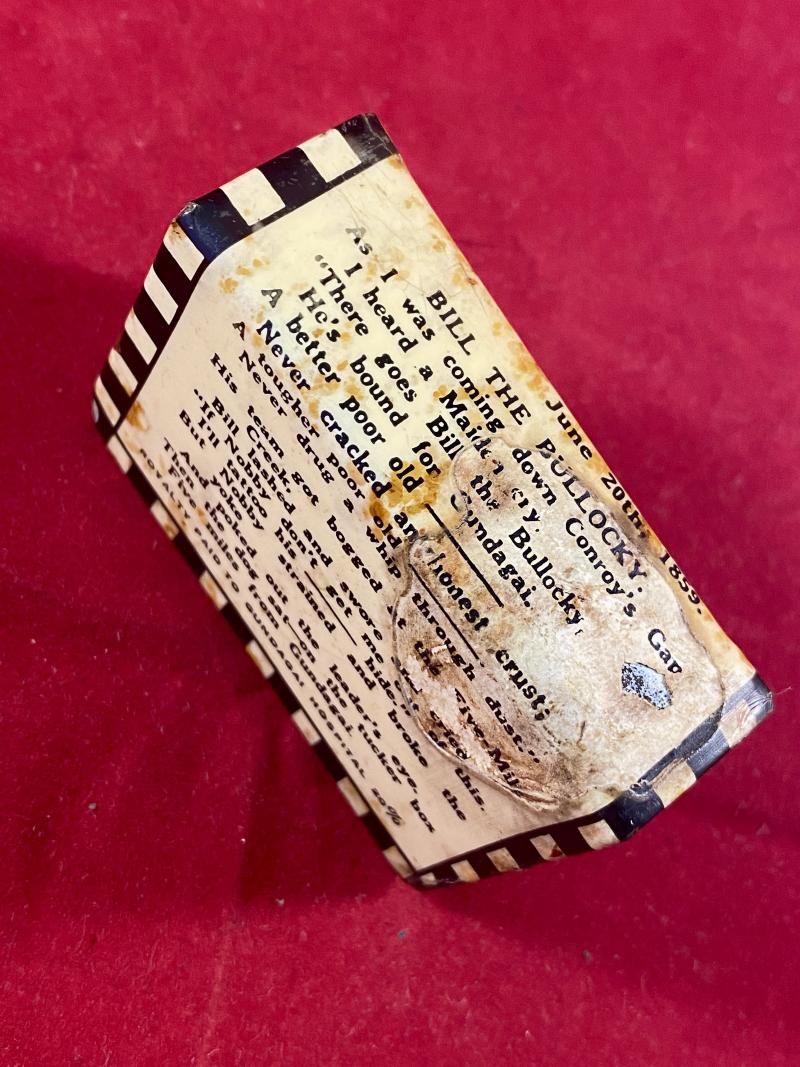 June 20th, 1899.
BILL THE BULLOCKY.
As I was coming down Conroy's Gap
I heard a Maiden cry,
"There goes Bill the Bullocky,
He's bound for Gundagai.
A better poor old
Never cracked an honest crust;
A tougher poor old
Never drug a whip through dust...
His team got bogged at the Five Mile
Creek
Bill lashed and swore and
"If Nobby don't get this.
I'll tattoo his hide
But Nobby strained and broke the
And poked out the leader's eye.
Then the box
Five miles from Gundagai
ROYALTY PAID TO GUNDAGAI HOSPITAL 20%